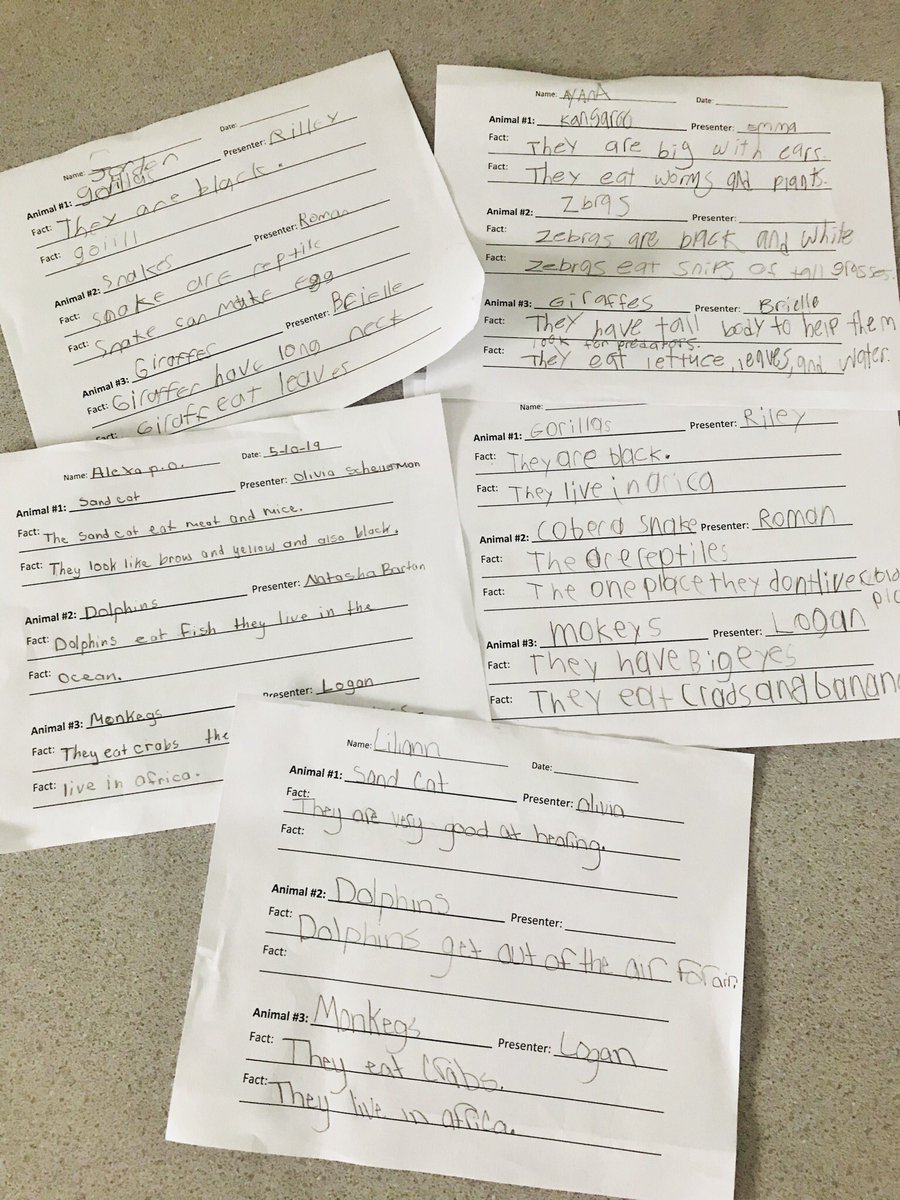 Name: Jordan Date:
Animal #1: gorillas Presenter: Rilley
Fact: They are black.
Fact: goiill
Animal #2: Snakes Presenter: Roman
Fact: Snake are reptile
Fact: Snake can make egg
Animal #3: Giraffes Presenter: BRielle
Fact: Giraffer have long neck
Fact: Giraff eat leaves
Name: AyAnA Date:
Animal #1: Kangaroo Presenter: emma
Fact: They are big with ears.
Fact: They eat worms and plants.
Animal #2: Zbras Presenter:
Fact: Zebras are black and white
Fact: Zebras eat snips of tall grasses.
Animal #3: Giraffes Presenter: Brielle
Fact: They have tall body to help them
look for predators.
Fact: They eat lettuce, leaves, and water.
Name: Alexa p.o. Date: 5-10-19
Animal #1: Sand cat Presenter: Olivia
Fact: The sand cat eat meat and mice.
Fact: They look like brow and yellow and also black.
Animal #2: Dolphins Presenter: Natasha Barton
Fact: Dolphins eat fish they live in the
Fact: ocean.
Animal #3: Monkegs Presenter: Logan
Fact: They eat crabs the
Fact: live in africa.
Name:
Animal #1: Gorillas Presenter: Riley
Fact: They are black.
Fact: They live in arica
Animal #2: Cobera Snake Presenter: Roman
Fact: The are reptiles
Fact: The one place they dont live cold
plc
Animal #3: mokeys Presenter: Logan
Fact: They have Big eyes
Fact: They eat crads and banan
Name: Liliann Date:
Animal #1: Sand Cat Presenter: Olivia
Fact: They are very good at hearing.
Fact:
Animal #2: Dolphins Presenter:
Fact: Dolphins get out of the air for air.
Fact:
Animal #3: Monkegs Presenter: Logan
Fact: They eat crabs.
Fact: They live in africa.